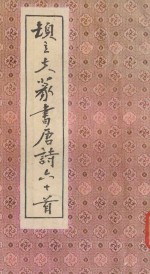 頓立夫篆書唐詩六十首